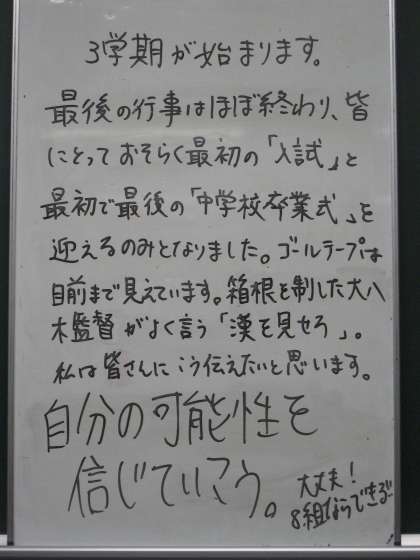 3学期が始まります。
最後の行事はほぼ終わり、皆
にとっておそらく最初の「入試」と
最初で最後の「中学校卒業式」を
迎えるのみとなりました。ゴールテープは
目前まで見えています。箱根を制した大八
木監督がよく言う「漢を見せろ」。
私は皆さんにこう伝えたいと思います。
自分の可能性を
信じていこう。
大丈夫!
8組ならできる!!